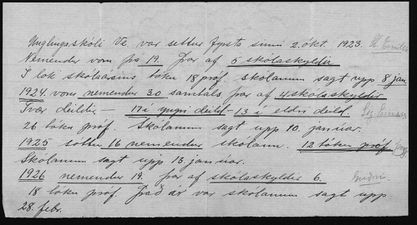 Unglingaskóli Ve. var settur fyrsta sinn 2. okt. 1923.
Nemendur voru þá 19. þar af 5 skólaskyldir
Í lok skólaársins tóku 18 próf skólanum sagt upp 8. jan
1924 voru nemendur 30 samtals þar af 4 skólaskyldir
Tvær deildir - 17 í yngri deild - 13 í eldri deild.
26 tóku próf Skólanum sagt upp 10. janúar.
1925 sóttu 16 nemendur skólann. 12 tóku próf
Skólanum sagt upp 13. janúar.
1926 nemendur 19. þar af skólaskyldir 6.
18 tóku próf það ár var skólanum sagt upp
28. febr.